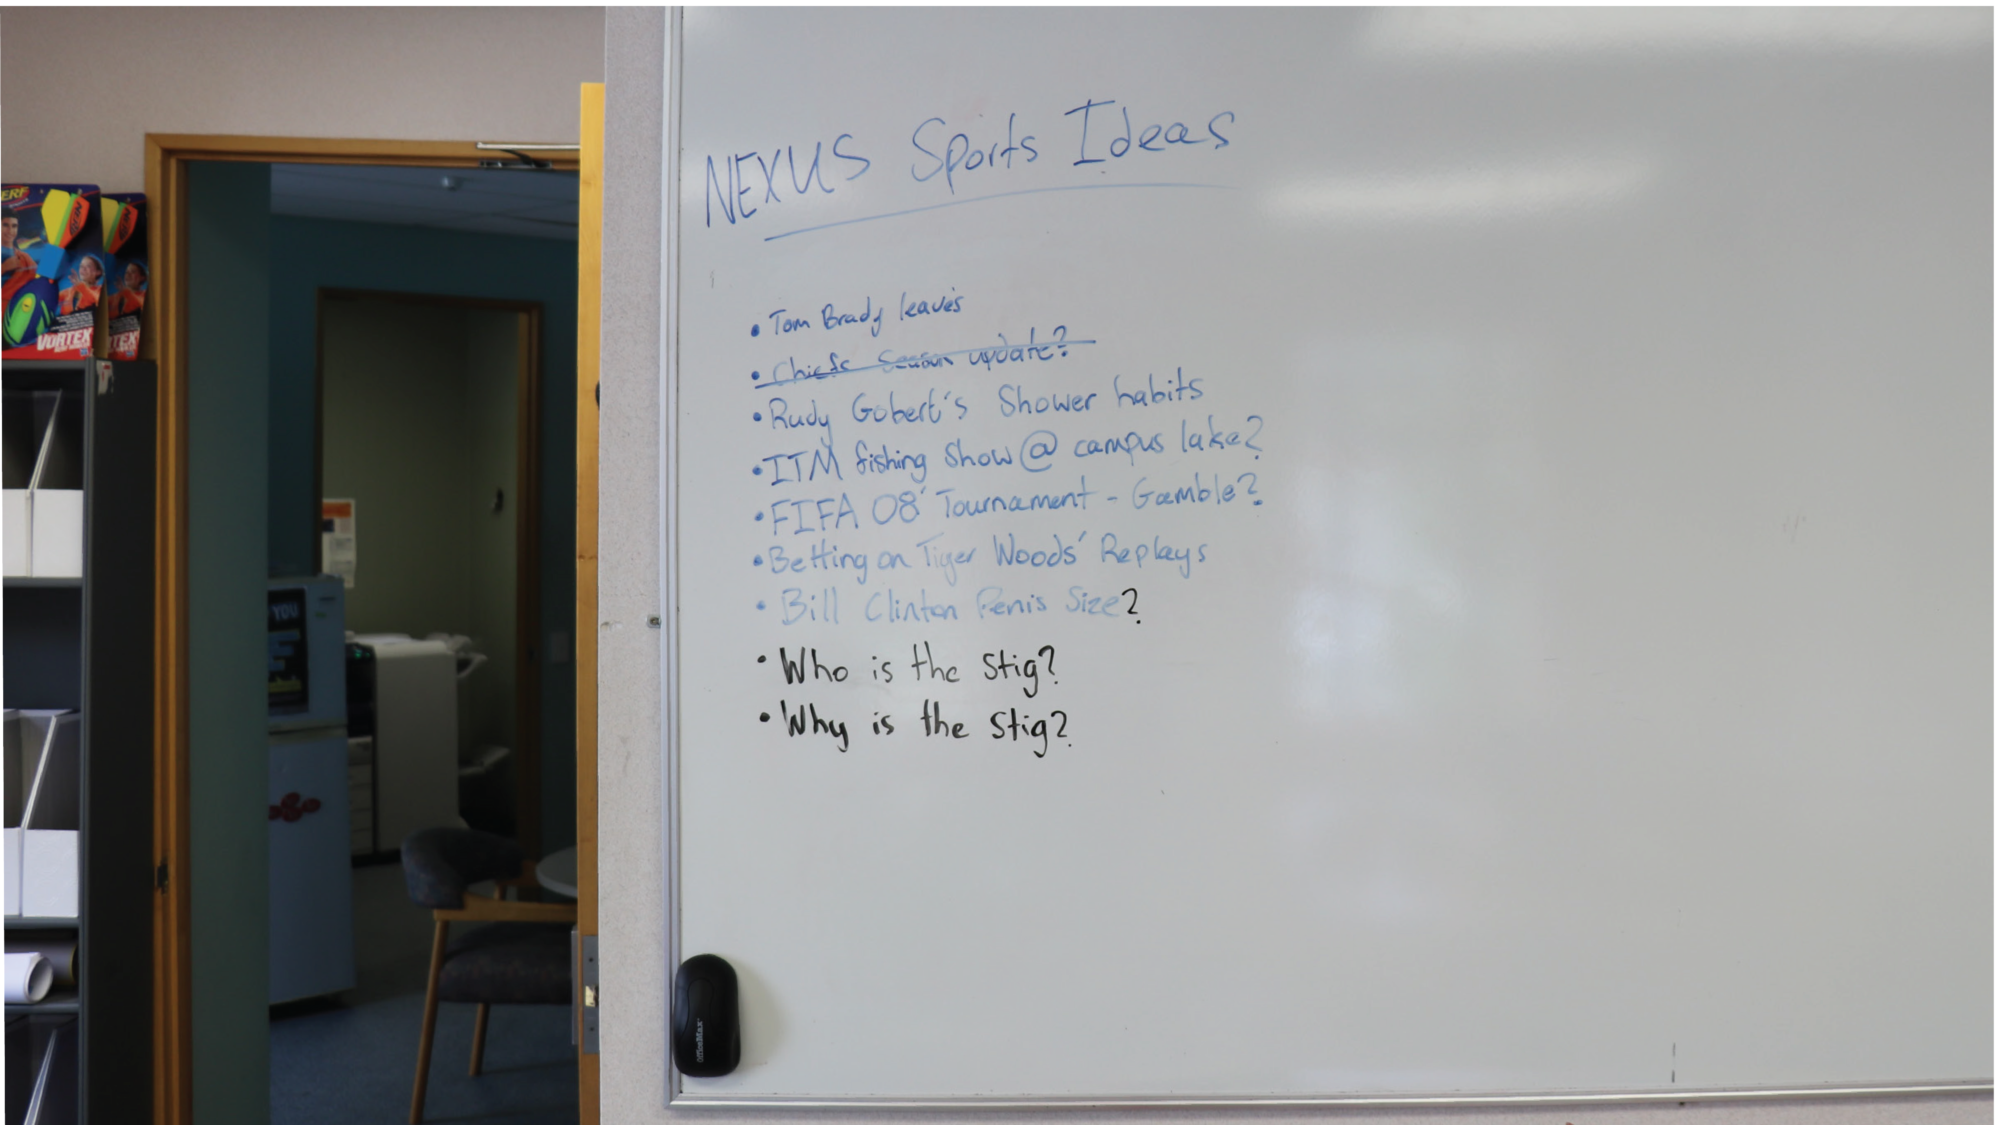 NEXUS Sports Ideas
• Tom Brady leaves
• Chiefs Season update?
• Rudy Gobert's Shower habits
• ITM fishing Show @ campus lake?
• FIFA 08' Tournament - Gamble?
• Betting on Tiger Woods' Replays
• Bill Clinton Penis Size?
• Who is the Stig?
• Why is the Stig?
ERF
VORTEX
TEX
YOU
OfficeMax